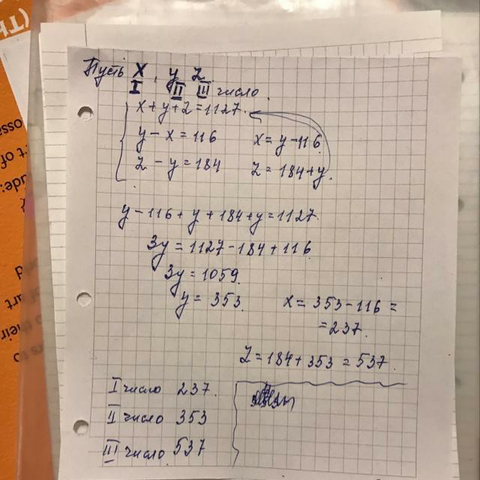 Пусть X, y Z
I II III число.
x+y+z=1127.
y-x=116 x=y-116
z-y=184 z=184+y.
y-116+y+184+y=1127.
3y=1127-184+116.
3y=1059.
y=353. x=353-116=
=237.
z=184+353=537.
I число 237.
II число 353
III число 537